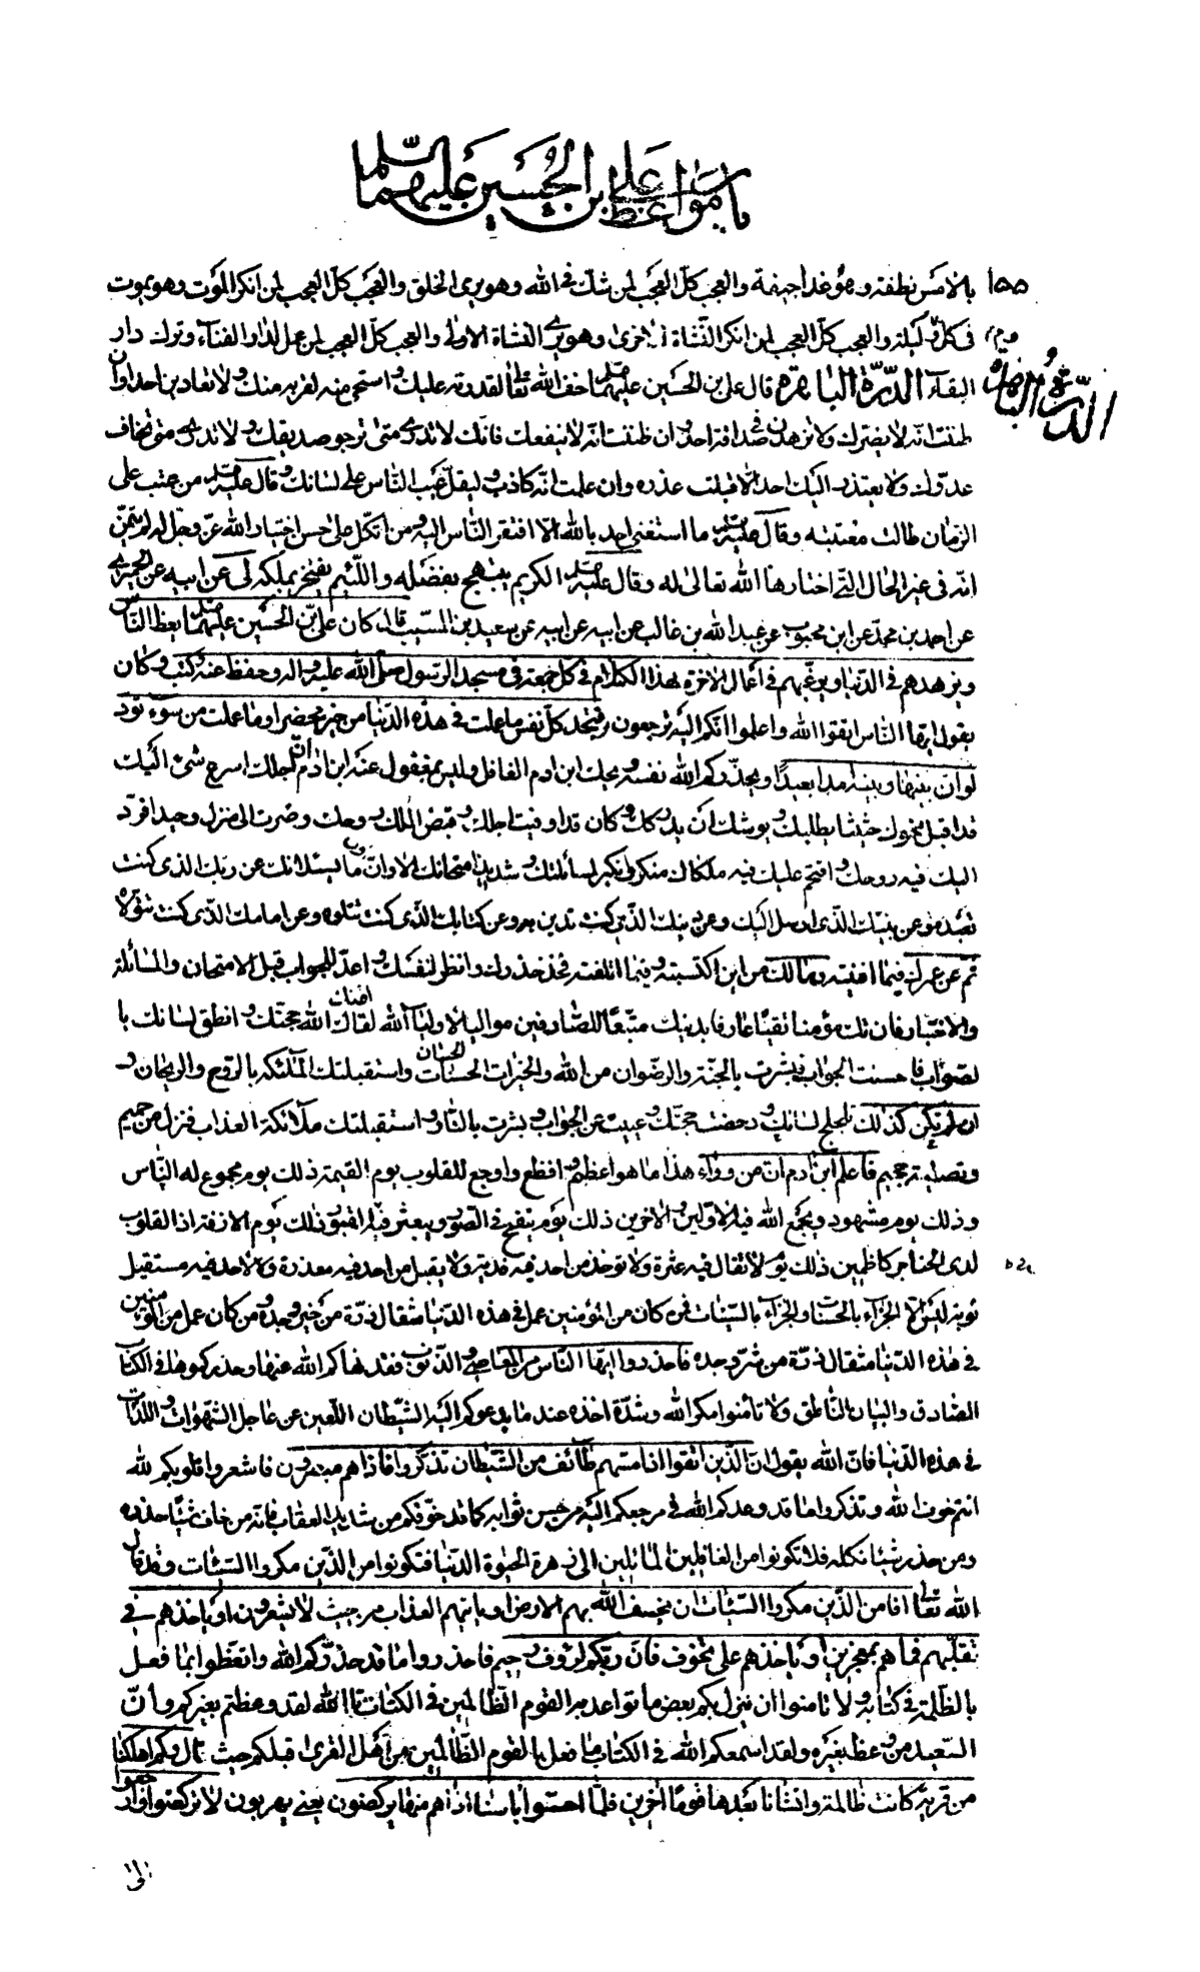 باب مواعظ علي بن الحسين عليهما السلم
١٥٥
بالامس نطفة وهو غدا جيفة والعجب كل العجب لمن شك في الله وهو يرى الخلق والعجب كل العجب لمن انكر الموت وهو يموت
في كل يوم وليلة والعجب كل العجب لمن انكر النشاة الاخرى وهو يرى النشاة الاولى والعجب كل العجب لمن عمل لدار الفناء وترك دار
الدرة الباهرة
البقاء الدرة الباهرة قال علي بن الحسين عليهما السلم خف الله تعالى لقدرته عليك واستحي منه لقربه منك ولا تعادين احدا وان
ظننت انه لا يضرك ولا تزهدن في صداقة احد وان ظننت انه لا ينفعك فانك لا تدري متى ترجو صديقك ولا تدري متى تخاف
عدوك ولا يعتذر اليك احد الا قبلت عذره وان علمت انه كاذب وليقل عيب الناس على لسانك وقال عليه السلم من عتب على
الزمان طالت معتبته وقال عليه السلم ما استغنى احد بالله الا افتقر الناس اليه ومن اتكل على حسن اختيار الله عز وجل له لم يتمن
انه في غير الحال التي اختارها الله تعالى له وقال عليه السلم الكريم يبتهج بفضله واللئيم يفتخر بملكه لي عن ابيه عن الحميري
عن احمد بن محمد عن ابن محبوب عن عبد الله بن غالب عن ابيه عن سعيد بن المسيب قال كان علي بن الحسين عليهما السلم يعظ الناس
ويزهدهم في الدنيا ويرغبهم في اعمال الاخرة بهذا الكلام في كل جمعة في مسجد الرسول صلى الله عليه واله وحفظ عنه وكتب وكان
يقول ايها الناس اتقوا الله واعلموا انكم اليه ترجعون فتجد كل نفس ما عملت في هذه الدنيا من خير محضرا وما عملت من سوء تود
لو ان بينها وبينه امدا بعيدا ويحذركم الله نفسه ويحك ابن ادم الغافل وليس بمغفول عنه ابن ادم ان اجلك اسرع شئ اليك
قد اقبل نحوك حثيثا يطلبك ويوشك ان يدركك وكان قد اوفيت اجلك وقبض الملك روحك وصرت الى منزل وحيدا فرد
اليك فيه روحك واقتحم عليك فيه ملكاك منكر ونكير لمسائلتك وشديد امتحانك الا وان اول ما يسئلانك عن ربك الذي كنت
تعبده وعن نبيك الذي ارسل اليك وعن دينك الذي كنت تدين به وعن كتابك الذي كنت تتلوه وعن امامك الذي كنت تتولاه
ثم عن عمرك فيما افنيته ومالك من اين اكتسبته وفيما اتلفته فخذ حذرك وانظر لنفسك واعد للجواب قبل الامتحان والمسائلة
والاختبار فان تك مؤمنا تقيا عارفا بدينك متبعا للصادقين مواليا لاولياء الله لقاك الله حجتك وانطق لسانك با
لصواب فاحسنت الجواب فبشرت بالجنة والرضوان من الله والخيرات الحسان واستقبلتك الملئكة بالروح والريحان و
ان لم تكن كذلك تلجلج لسانك ودحضت حجتك وعييت عن الجواب وبشرت بالنار واستقبلتك ملائكة العذاب فنزل من حميم
وتصلية جحيم فاعلم ابن ادم ان من وراء هذا ما هو اعظم وافظع واوجع للقلوب يوم القيمة ذلك يوم مجموع له الناس
وذلك يوم مشهود ويجمع الله فيه الاولين والاخرين ذلك يوم ينفخ في الصور ويبعثر فيه القبور ذلك يوم الازفة اذ القلوب
لدى الحناجر كاظمين ذلك يوم لا تقال فيه عثرة ولا تؤخذ من احد فيه فدية ولا يقبل من احد فيه معذرة ولا لاحد فيه مستقبل
توبة ليس الا الجزاء بالحسنات والجزاء بالسيئات فمن كان من المؤمنين عمل في هذه الدنيا مثقال ذرة من خير وجده ومن كان عمل من المؤمنين
في هذه الدنيا مثقال ذرة من شر وجده فاحذروا ايها الناس من المعاصي والذنوب فقد نهاكم الله عنها وحذركموها في الكتاب
الصادق والبيان الناطق ولا تأمنوا مكر الله وشدة اخذه عند ما يدعوكم اليه الشيطان اللعين من عاجل الشهوات واللذات
في هذه الدنيا فان الله يقول ان الذين اتقوا اذا مسهم طائف من الشيطان تذكروا فاذا هم مبصرون فاشعروا قلوبكم لله
انتم خوف الله وتذكروا ما قد وعدكم الله في مرجعكم اليه من حسن ثوابه كما قد خوفكم من شديد العقاب فانه من خاف شيئا حذره
ومن حذر شيئا نكله فلا تكونوا من الغافلين المائلين الى زهرة الحيوة الدنيا فتكونوا من الذين مكروا السيئات وقد قال
الله تعالى افامن الذين مكروا السيئات ان يخسف الله بهم الارض او ياتيهم العذاب من حيث لا يشعرون او ياخذهم في
تقلبهم فما هم بمعجزين او ياخذهم على تخوف فان ربكم لرؤف رحيم فاحذروا ما قد حذركم الله واتعظوا بما فعل
بالظلمة في كتابه ولا تامنوا ان ينزل بكم بعض ما تواعد به القوم الظالمين في الكتاب تالله لقد وعظتم بغيركم وان
السعيد من وعظ بغيره ولقد اسمعكم الله في الكتاب ما فعل بالقوم الظالمين من اهل القرى قبلكم حيث قال وكم اهلكنا
من قرية كانت ظالمة وانشانا بعدها قوما اخرين فلما احسوا باسنا اذا هم منها يركضون يعني يهربون لا تركضوا وارجعوا
الى